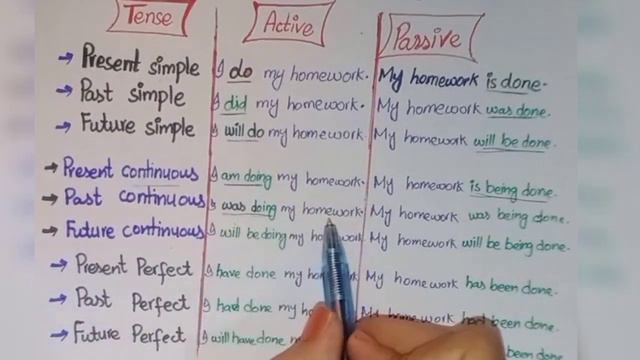 Tense Active Passive
→ Present simple I do my homework. My homework is done.
→ Past simple I did my homework. My homework was done.
→ Future simple I will do my homework. My homework will be done.
→ Present continuous I am doing my homework. My homework is being done.
→ Past continuous I was doing my homework. My homework was being done.
→ Future continuous I will be doing my homework. My homework will be being done.
→ Present Perfect I have done my My homework has been done.
→ Past Perfect I had done my My homework had been done.
→ Future Perfect I will have done been done